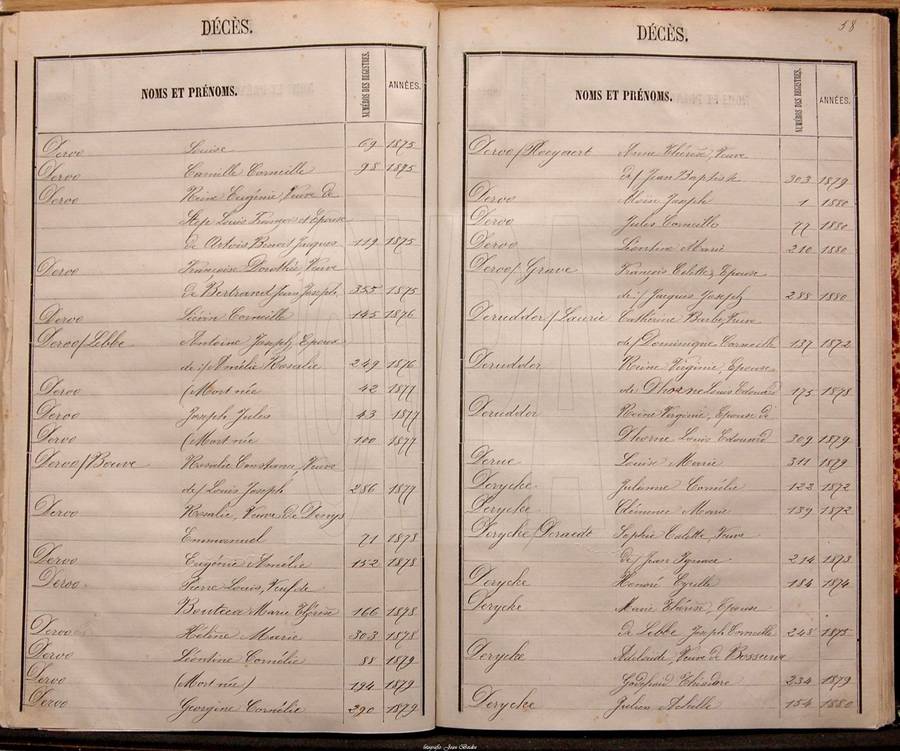 DÉCÈS.
NOMS ET PRÉNOMS. NUMÉROS DES REGISTRES. ANNÉES.
Deroo Louise 69 1875
Deroo Camille Corneille 98 1875
Deroo Reine Eugénie, Veuve de
Stefe Louis François et Epouse
de Artois Benoit Jacques 119 1875
Deroo Françoise Dorothée, Veuve
de Bertrand Jean Joseph 355 1875
Deroo Corneille 145 1876
Deroo / Lebbe Antoine Joseph, Epoux
de / Amélie Rosalie 249 1876
Deroo (Mort née 42 1877
Deroo Joseph Jules 43 1877
Deroo (Mort née 100 1877
Deroo / Bouve Rosalie Constance, Veuve
de / Louis Joseph 286 1877
Deroo Rosalie, Veuve de Denys
Emmanuel 71 1878
Deroo Eugénie Amélie 152 1878
Deroo Pierre Louis, Veuf de
Bouteca Marie Thérèse 166 1878
Deroo Hélène Marie 303 1878
Deroo Léontine Cornélie 88 1879
Deroo (Mort née) 194 1879
Deroo Georgine Cornélie 290 1879
58
DÉCÈS.
NOMS ET PRÉNOMS. NUMÉROS DES REGISTRES. ANNÉES.
Deroo / Hoeyaert Anne Thérèse, Veuve
de / Jean Baptiste 303 1879
Deroo Joseph 1 1880
Deroo Jules Corneille 77 1880
Deroo Léontine Marie 210 1880
Deroo / Grave François Colette, Epouse
de / Jacques Joseph 288 1880
Derudder / Laurie Catherine Barbe, Veuve
de / Dominique Corneille 137 1872
Derudder Reine Virginie, Epouse
de Dhorne Louis Edouard 175 1878
Derudder Reine Virginie, Epouse de
Dhorne Louis Edouard 309 1879
Derue Louise Marie 311 1879
Derycke Julienne Cornélie 122 1872
Derycke Clémence Marie 189 1872
Derycke / Deraedt Sophie Colette, Veuve
de / Jean Ignace 214 1873
Derycke Honoré Cyrille 184 1874
Derycke Marie Thérèse, Epouse
de Lebbe Joseph Corneille 248 1875
Derycke Adelaïde, Veuve de Bossuwe
Godefroid Théodore 234 1879
Derycke Julien Achille 154 1880
fotografie Jean Baeke